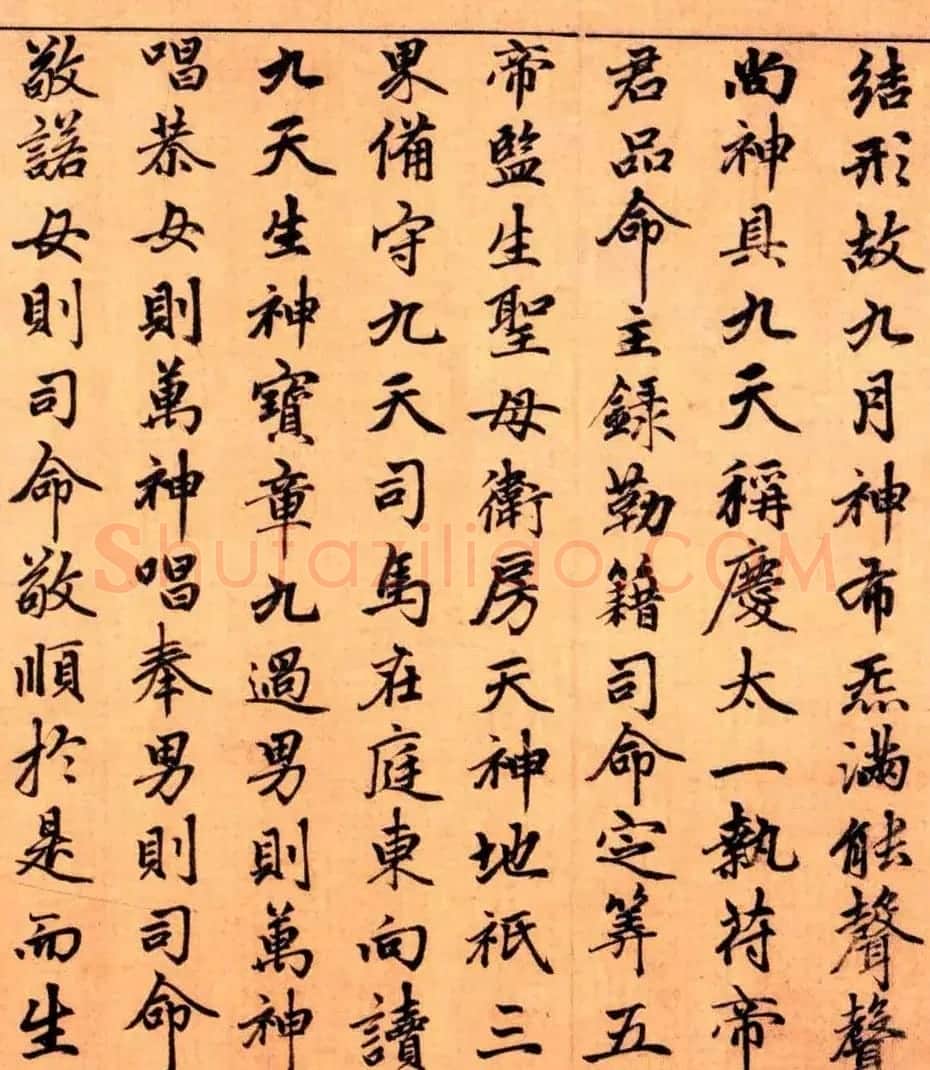 結形故九月神布炁滿能聲聲
尚神具九天稱慶太一執苻帝
君品命主錄勒籍司命定筭五
帝監生聖母衛房天神地祇三
果備守九天司馬在庭東向讀
九天生神寶章九過男則萬神
唱恭女則萬神唱奉男則司命
敬諾女則司命敬順於是而生
Shufaziliao.COM